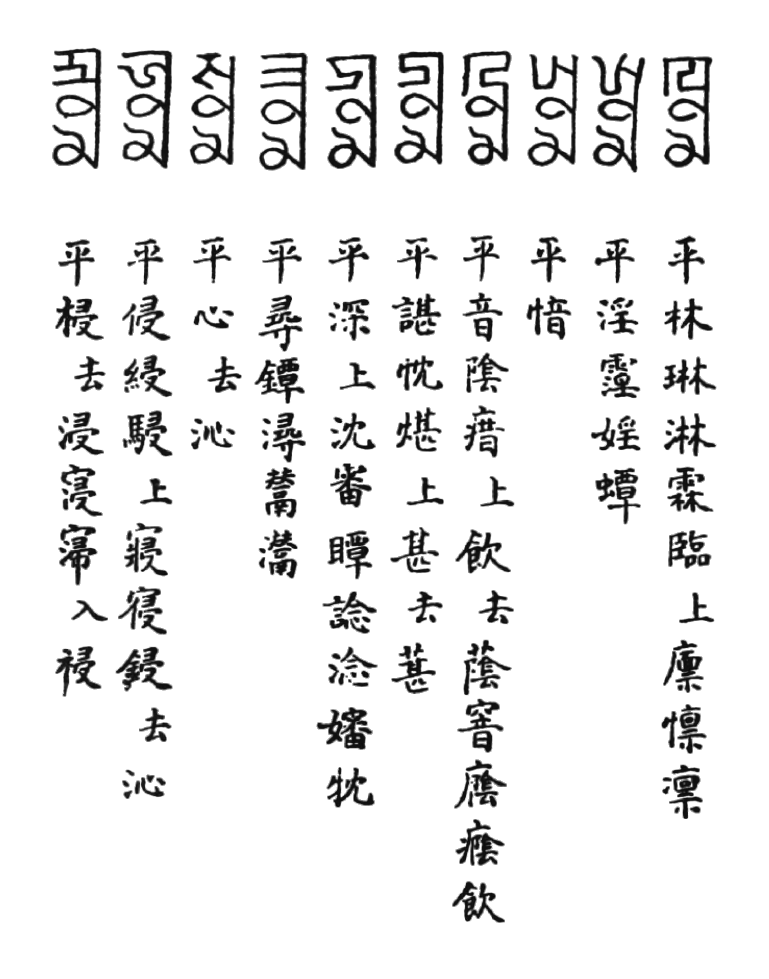 ꡙꡞꡏ 平林琳淋霖臨上廩懍凛
ꡗꡞꡏ 平淫霪婬蟫
ꡭꡞꡏ 平愔
ꡖꡞꡏ 平音陰瘖上飲去蔭窨廕癊飲
ꡚꡞꡏ 平諶忱煁上甚去葚
ꡮꡞꡏ 平深上沈審瞫諗淰嬸
ꡕꡞꡏ 平尋鐔潯鬵灊
ꡛꡞꡏ 平心去沁
ꡑꡞꡏ 平侵綅駸上寢寑鋟去沁
ꡒꡞꡏ 平梫去浸寖入祲